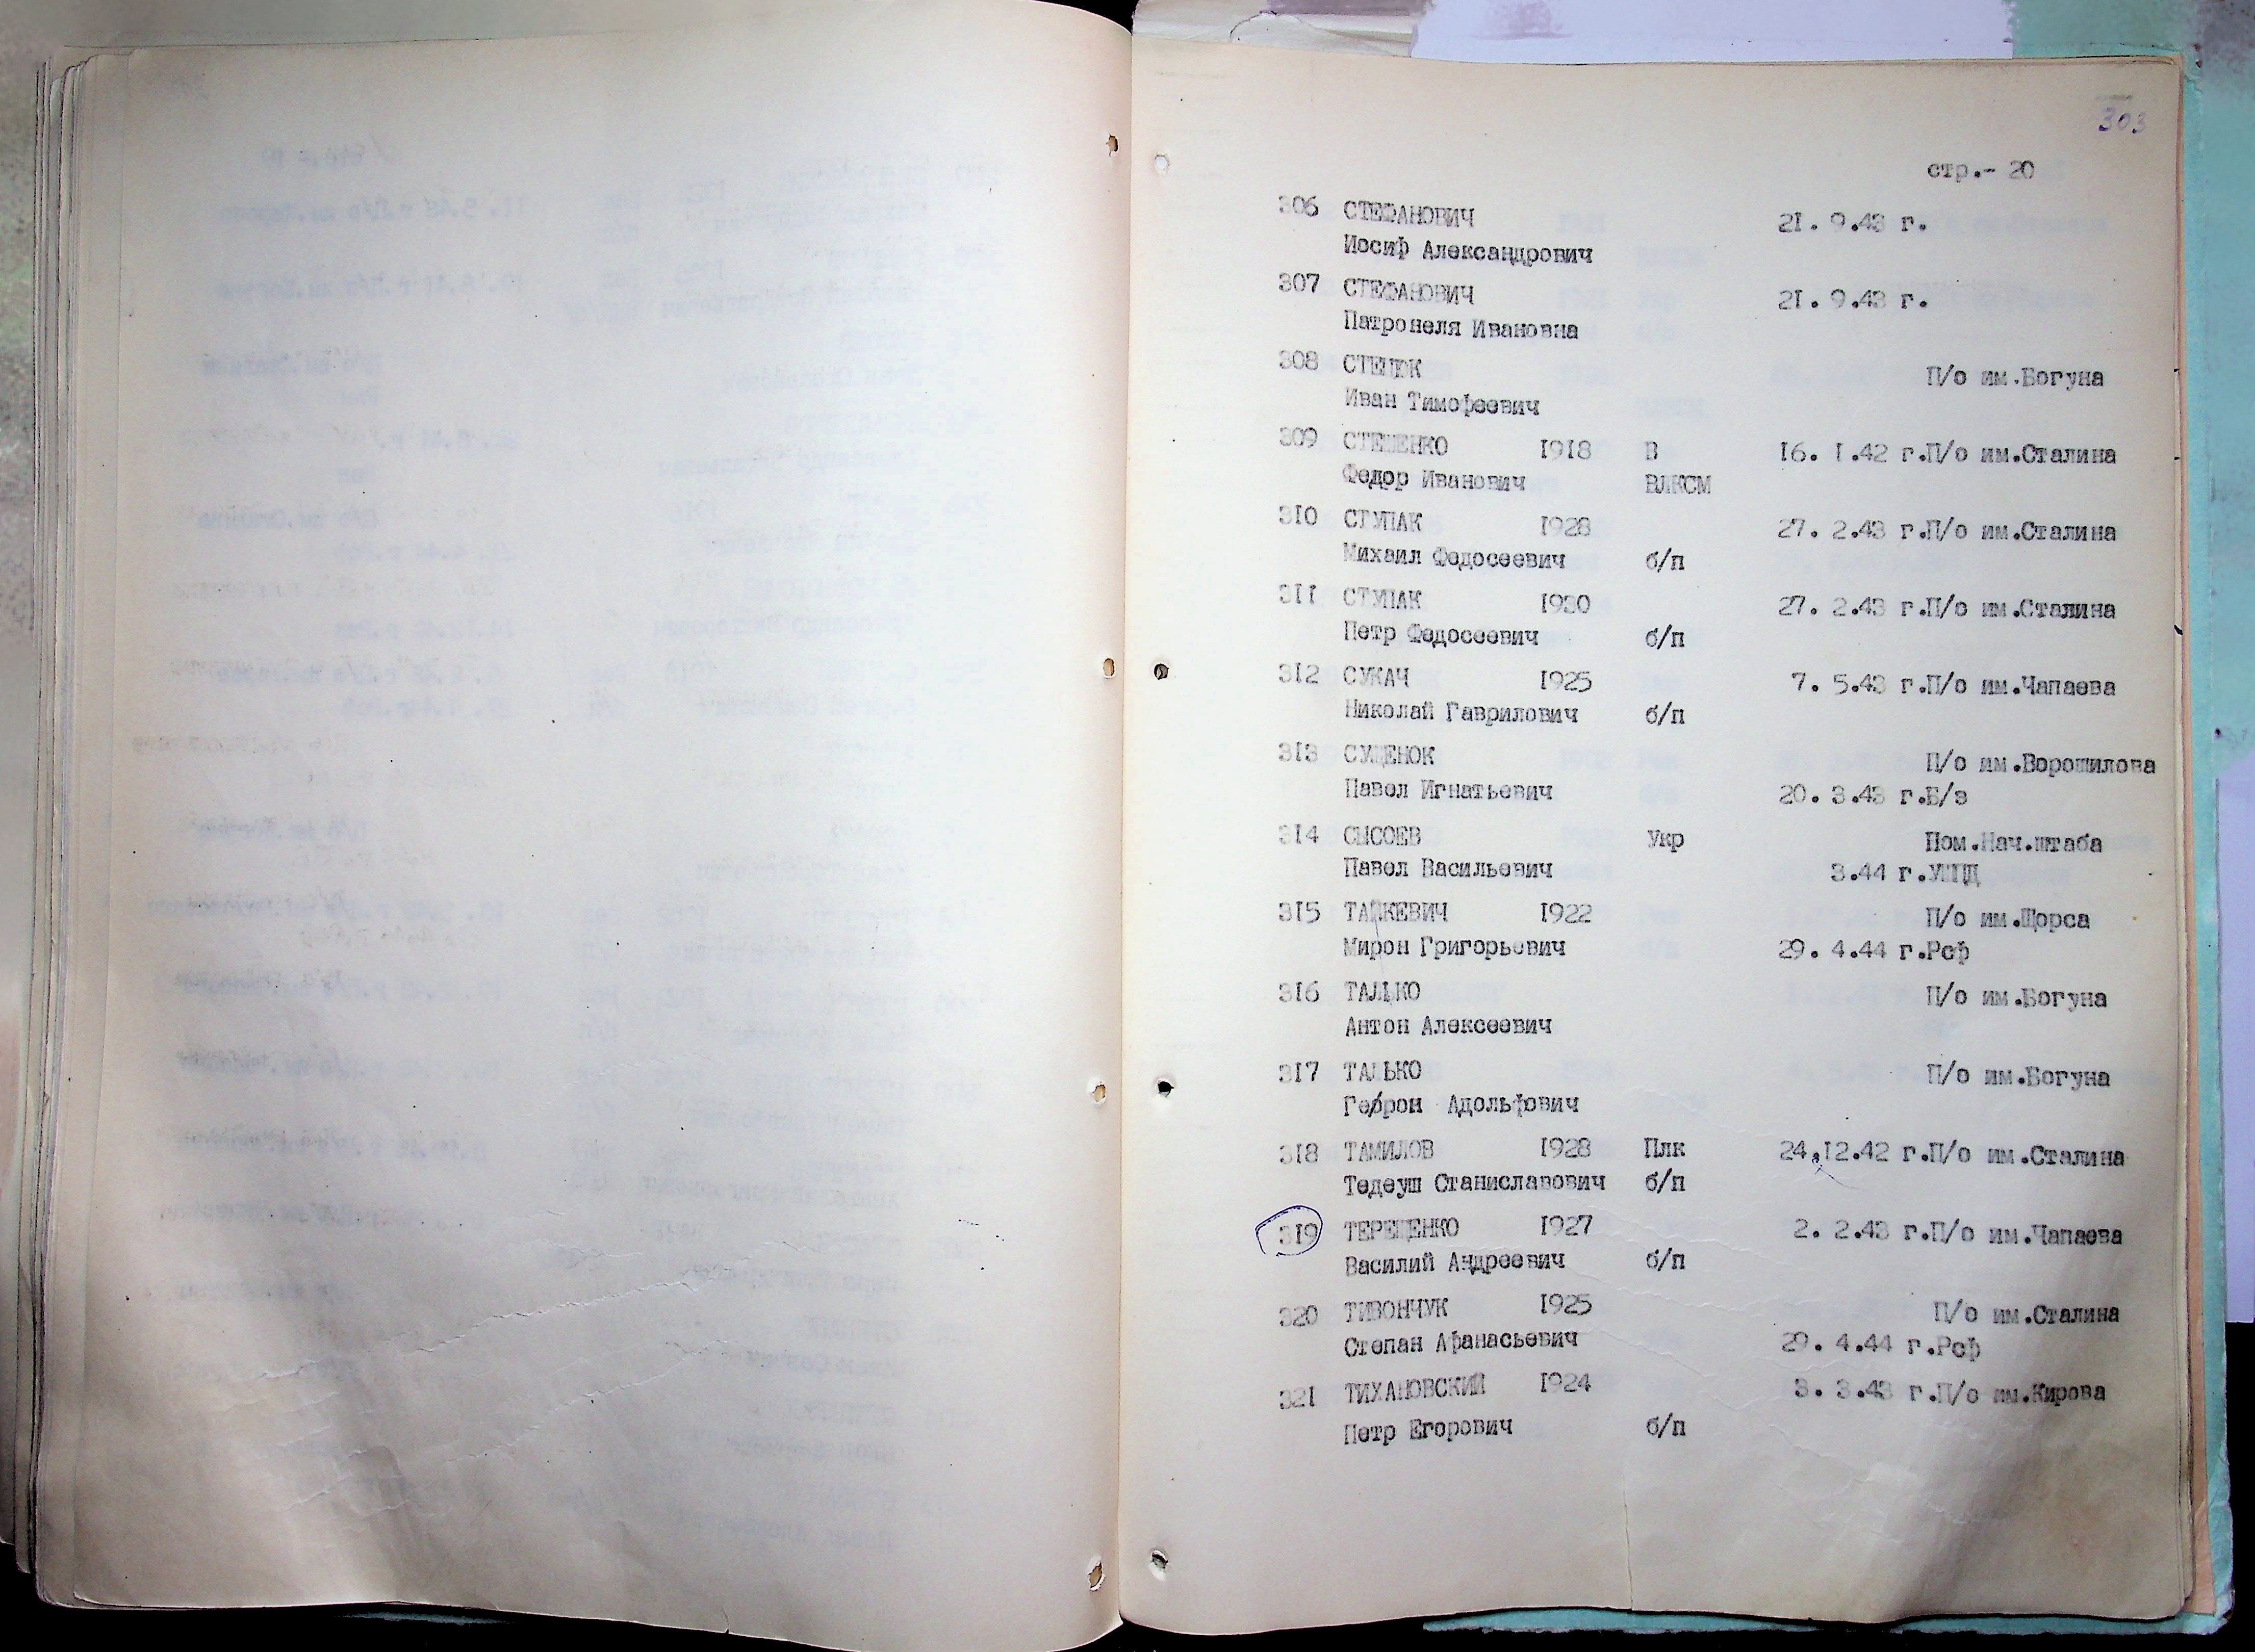 303
стр.- 20
306 СТЕФАНОВИЧ 21. 9.43 г.
Иосиф Александрович
307 СТЕФАНОВИЧ 21. 9.43 г.
Патронеля Ивановна
308 П/о им.Богуна
Иван Тимофеевич
309 1918 В 16. 1.42 г.П/о им.Сталина
Федор Иванович ВЛКСМ
310 СТУПАК 1928 27. 2.43 г.П/о им.Сталина
Михаил Федосеевич б/п
311 СТУПАК 1930 27. 2.43 г.П/о им.Сталина
Петр Федосеевич б/п
312 СУКАЧ 1925 7. 5.43 г.П/о им.Чапаева
Николай Гаврилович б/п
313 СУЩЕНОК П/о им.Ворошилова
Павел Игнатьевич 20. 3.43 г.Б/з
314 СЫСОЕВ Укр Пом.Нач.штаба
Павел Васильевич 3.44 г.УШПД
315 ТАЦКЕВИЧ 1922 П/о им.Щорса
Мирон Григорьевич 29. 4.44 г.Рсф
316 ТАЛЬКО П/о им.Богуна
Антон Алексеевич
317 ТАЛЬКО П/о им.Богуна
Адольфович
318 ТАМИЛОВ 1928 Плк 24.12.42 г.П/о им.Сталина
Тедеуш Станиславович б/п
319 ТЕРЕЩЕНКО 1927 2. 2.43 г.П/о им.Чапаева
Василий Андреевич б/п
320 ТИВОНЧУК 1925 П/о им.Сталина
Степан Афанасьевич 29. 4.44 г.Рсф
321 ТИХАНОВСКИЙ 1924 3. 3.43 г.П/о им.Кирова
Петр Егорович б/п